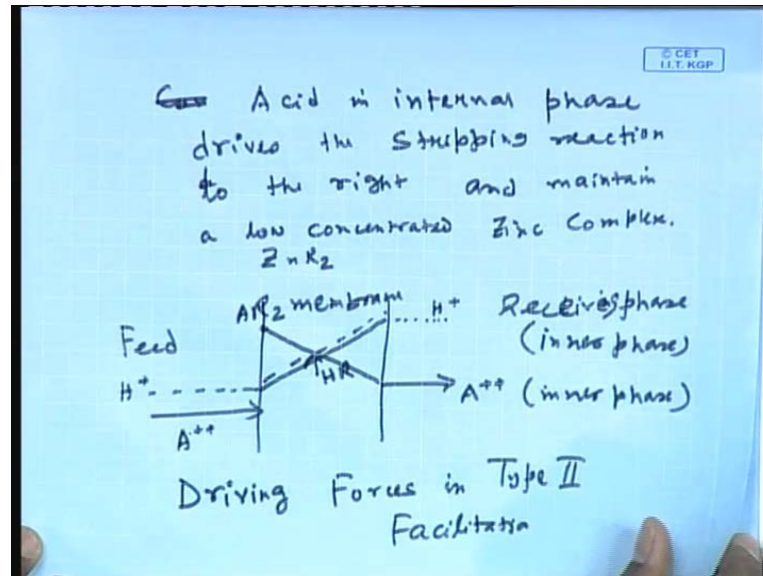 © CET
I.I.T. KGP
Acid in internal phase
drives the stripping reaction
to the right and maintain
a low concentrated Zinc Complex.
ZnR2
AR2 membrane H+ Receiving phase
Feed (inner phase)
H+ HR A++ (inner phase)
A++
Driving Forces in Type II
Facilitation